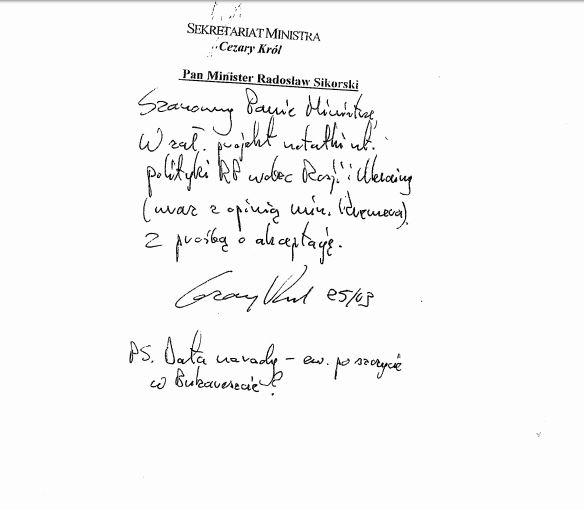 SEKRETARIAT MINISTRA
Cezary Król
Pan Minister Radosław Sikorski
Szanowny Panie Ministrze,
W zał. projekt notatki nt.
polityki RP wobec Rosji i Ukrainy
(wraz z opinią min. Kremera).
Z prośbą o akceptację.
Cezary Król 25/03
PS. Data narady – ew. po szczycie
w Bukareszcie?